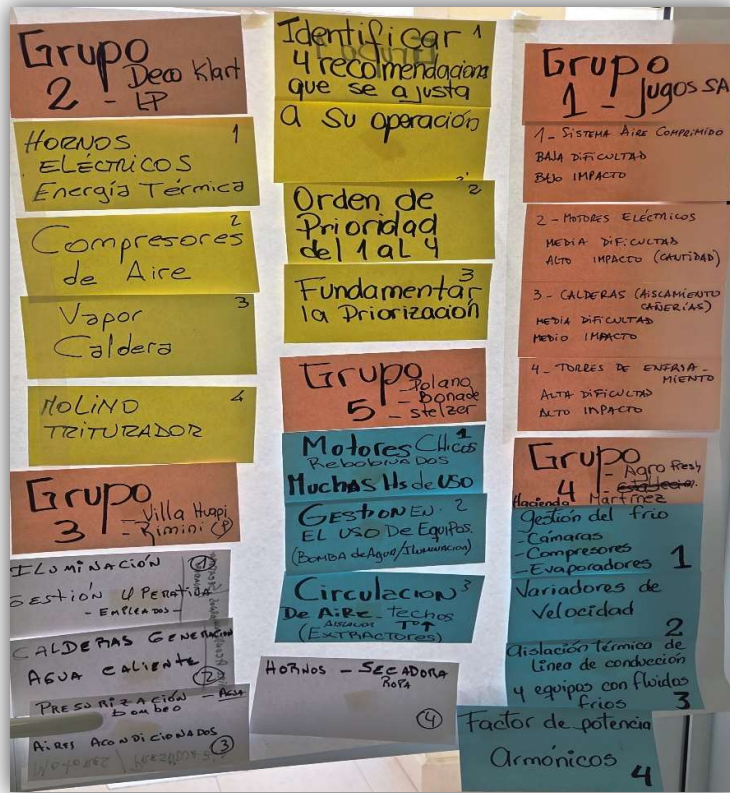 Grupo
2 - Deco Klart
LP
HORNOS 1
ELÉCTRICOS
Energía Térmica
Compresores 2
de Aire
Vapor 3
Caldera
MOLINO 4
TRITURADOR
Grupo
3 - Villa Huapi
- Rimini LP
ILUMINACIÓN 1
GESTIÓN OPERATIVA
- EMPLEADOS -
CALDERAS GENERACION
AGUA CALIENTE 2
PRESURIZACIÓN - AGUA
bombeo
AIRES ACONDICIONADOS 3
Identificar 1
4 recomendaciones
que se ajusta
a su operación
Orden de 2
Prioridad
del 1 al 4
Fundamentar 3
la Priorización
Grupo
5 - Polano
- Bonade
- Stelzer
Motores CHICOS 1
REBOBINADOS
MUCHAS Hs de USO
GESTION EN 2
EL USO De EquiPos.
(BOMBA de Agua/ILUMINACION)
Circulacion 3
De AiRe - Techos
AISLADOS To↑
(EXTRACTORES)
HORNOS - SECADORA
ROPA
4
Grupo
1 - Jugos SA
1 - SISTEMA AIRE COMPRIMIDO
BAJA DIFICULTAD
BAJO IMPACTO
2 - MOTORES ELÉCTRICOS
MEDIA DIFICULTAD
ALTO IMPACTO (CANTIDAD)
3 - CALDERAS (AISLAMIENTO
CAÑERÍAS)
MEDIA DIFICULTAD
MEDIO IMPACTO
4 - TORRES DE ENFRIA-
MIENTO
ALTA DIFICULTAD
ALTO IMPACTO
Grupo
4 - Agro Fresh
Hacienda Martínez
gestión del frio
- Cámaras
- Compresores
- Evaporadores 1
Variadores de
Velocidad
2
Aislación térmica de
Linea de conducción
y equipos con fluidos
frios 3
Factor de potencia
Armónicos
4